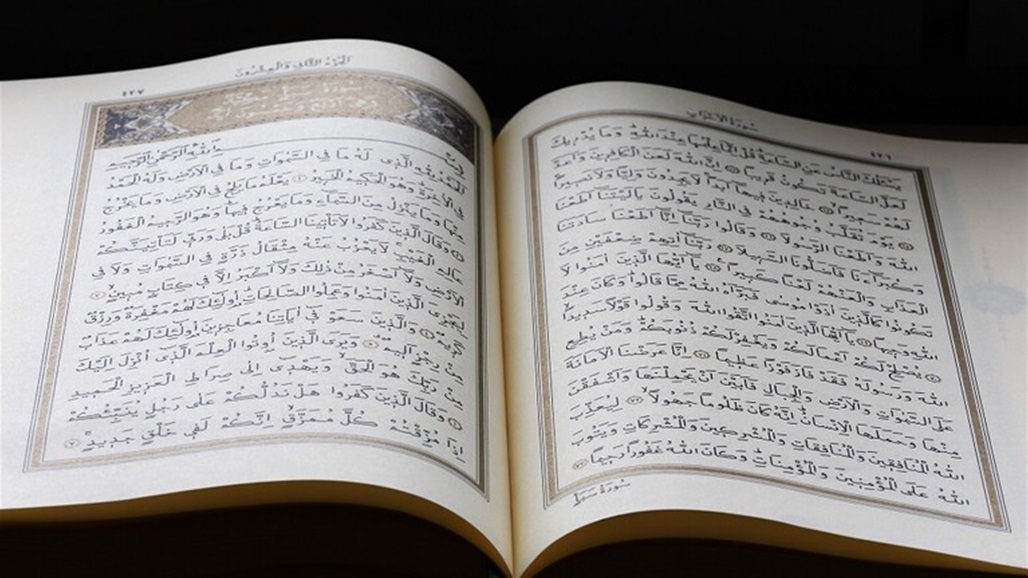 سُورَةُ الْاَحْزَابِ
٤٢٦
يَسْـَٔلُكَ النَّاسُ عَنِ السَّاعَةِ قُلْ اِنَّمَا عِلْمُهَا عِنْدَ اللّٰهِ وَمَا يُدْرِيكَ
لَعَلَّ السَّاعَةَ تَكُونُ قَرِيبًا ﴿٦٣﴾ اِنَّ اللّٰهَ لَعَنَ الْكَافِرِينَ وَاَعَدَّ
لَهُمْ سَعِيرًا ﴿٦٤﴾ خَالِدِينَ فِيهَا اَبَدًا لَا يَجِدُونَ وَلِيًّا وَلَا نَصِيرًا
﴿٦٥﴾ يَوْمَ تُقَلَّبُ وُجُوهُهُمْ فِي النَّارِ يَقُولُونَ يَا لَيْتَنَا اَطَعْنَا
اللّٰهَ وَاَطَعْنَا الرَّسُولَا ﴿٦٦﴾ وَقَالُوا رَبَّنَا اِنَّا اَطَعْنَا سَادَتَنَا
وَكُبَرَاءَنَا فَاَضَلُّونَا السَّبِيلَا ﴿٦٧﴾ رَبَّنَا اٰتِهِمْ ضِعْفَيْنِ مِنَ
الْعَذَابِ وَالْعَنْهُمْ لَعْنًا كَبِيرًا ﴿٦٨﴾ يَا اَيُّهَا الَّذِينَ اٰمَنُوا لَا
تَكُونُوا كَالَّذِينَ اٰذَوْا مُوسٰى فَبَرَّاَهُ اللّٰهُ مِمَّا قَالُوا وَكَانَ عِنْدَ
اللّٰهِ وَجِيهًا ﴿٦٩﴾ يَا اَيُّهَا الَّذِينَ اٰمَنُوا اتَّقُوا اللّٰهَ وَقُولُوا قَوْلًا سَدِيدًا
﴿٧٠﴾ يُصْلِحْ لَكُمْ اَعْمَالَكُمْ وَيَغْفِرْ لَكُمْ ذُنُوبَكُمْ وَمَنْ يُطِعِ
اللّٰهَ وَرَسُولَهُ فَقَدْ فَازَ فَوْزًا عَظِيمًا ﴿٧١﴾ اِنَّا عَرَضْنَا الْاَمَانَةَ
عَلَى السَّمٰوَاتِ وَالْاَرْضِ وَالْجِبَالِ فَاَبَيْنَ اَنْ يَحْمِلْنَهَا وَاَشْفَقْنَ
مِنْهَا وَحَمَلَهَا الْاِنْسَانُ اِنَّهُ كَانَ ظَلُومًا جَهُولًا ﴿٧٢﴾ لِيُعَذِّبَ
اللّٰهُ الْمُنَافِقِينَ وَالْمُنَافِقَاتِ وَالْمُشْرِكِينَ وَالْمُشْرِكَاتِ وَيَتُوبَ
اللّٰهُ عَلَى الْمُؤْمِنِينَ وَالْمُؤْمِنَاتِ وَكَانَ اللّٰهُ غَفُورًا رَحِيمًا ﴿٧٣﴾
سُورَةُ سَبَأٍ
اَلْجُزْءُ الثَّانِي وَالْعِشْرُونَ
٤٢٧
سُورَةُ سَبَأٍ مَكِّيَّةٌ
وَهِيَ اَرْبَعٌ وَخَمْسُونَ اٰيَةً
بِسْمِ اللّٰهِ الرَّحْمٰنِ الرَّحِيمِ
اَلْحَمْدُ لِلّٰهِ الَّذِي لَهُ مَا فِي السَّمٰوَاتِ وَمَا فِي الْاَرْضِ وَلَهُ الْحَمْدُ
فِي الْاٰخِرَةِ وَهُوَ الْحَكِيمُ الْخَبِيرُ ﴿١﴾ يَعْلَمُ مَا يَلِجُ فِي الْاَرْضِ وَمَا يَخْرُجُ
مِنْهَا وَمَا يَنْزِلُ مِنَ السَّمَاءِ وَمَا يَعْرُجُ فِيهَا وَهُوَ الرَّحِيمُ الْغَفُورُ
﴿٢﴾ وَقَالَ الَّذِينَ كَفَرُوا لَا تَأْتِينَا السَّاعَةُ قُلْ بَلٰى وَرَبِّي لَتَأْتِيَنَّكُمْ
عَالِمِ الْغَيْبِ لَا يَعْزُبُ عَنْهُ مِثْقَالُ ذَرَّةٍ فِي السَّمٰوَاتِ وَلَا فِي
الْاَرْضِ وَلَا اَصْغَرُ مِنْ ذٰلِكَ وَلَا اَكْبَرُ اِلَّا فِي كِتَابٍ مُبِينٍ ﴿٣﴾
لِيَجْزِيَ الَّذِينَ اٰمَنُوا وَعَمِلُوا الصَّالِحَاتِ اُولٰئِكَ لَهُمْ مَغْفِرَةٌ وَرِزْقٌ
كَرِيمٌ ﴿٤﴾ وَالَّذِينَ سَعَوْ فِي اٰيَاتِنَا مُعَاجِزِينَ اُولٰئِكَ لَهُمْ عَذَابٌ
مِنْ رِجْزٍ اَلِيمٌ ﴿٥﴾ وَيَرَى الَّذِينَ اُوتُوا الْعِلْمَ الَّذِي اُنْزِلَ اِلَيْكَ
مِنْ رَبِّكَ هُوَ الْحَقَّ وَيَهْدِي اِلٰى صِرَاطِ الْعَزِيزِ الْحَمِيدِ
﴿٦﴾ وَقَالَ الَّذِينَ كَفَرُوا هَلْ نَدُلُّكُمْ عَلٰى رَجُلٍ يُنَبِّئُكُمْ
اِذَا مُزِّقْتُمْ كُلَّ مُمَزَّقٍ اِنَّكُمْ لَفِي خَلْقٍ جَدِيدٍ ﴿٧﴾